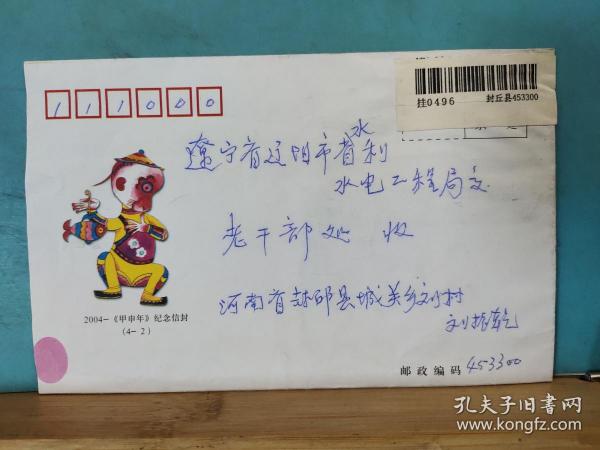 挂0496 封丘县453300
111000
辽宁省辽阳市省水利
水电工程局交
老干部处 收
2004-《甲申年》纪念信封
(4-2)
河南省封邱县城关乡刘村
刘振乾
邮政编码 453300
孔夫子旧书网
www.kongfz.com